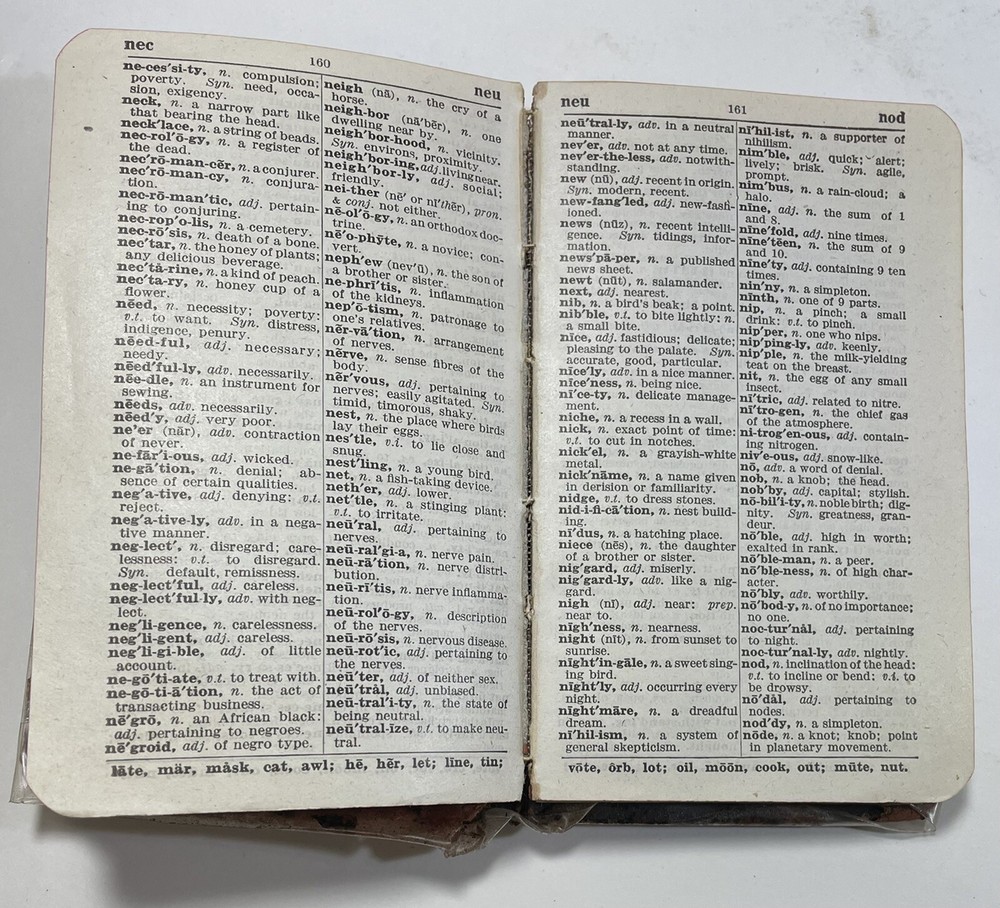 nec
160
neu
ne-ces′si-ty, n. compulsion;
poverty. Syn. need, occa-
sion, exigency.
neck, n. a narrow part like
that bearing the head.
neck′lace, n. a string of beads.
nec-rol′ō-gy, n. a register of
the dead.
nec′rō-man-cẽr, n. a conjurer.
nec′rō-man-cy, n. conjura-
tion.
nec-rō-man′tic, adj. pertain-
ing to conjuring.
nec-rop′o-lis, n. a cemetery.
nec-rō′sis, n. death of a bone.
nec′tar, n. the honey of plants;
any delicious beverage.
nec′tȧ-rine, n. a kind of peach.
nec′ta-ry, n. honey cup of a
flower.
nēed, n. necessity; poverty:
v.t. to want. Syn. distress,
indigence, penury.
nēed-ful, adj. necessary;
needy.
nēed′ful-ly, adv. necessarily.
nēe-dle, n. an instrument for
sewing.
nēeds, adv. necessarily.
nēed′y, adj. very poor.
ne'er (nãr), adv. contraction
of never.
ne-fãr′i-ous, adj. wicked.
ne-gā′tion, n. denial; ab-
sence of certain qualities.
neg′a-tive, adj. denying: v.t.
reject.
neg′a-tive-ly, adv. in a nega-
tive manner.
neg-lect′, n. disregard; care-
lessness: v.t. to disregard.
Syn. default, remissness.
neg-lect′ful, adj. careless.
neg-lect′ful-ly, adv. with neg-
lect.
neg′li-gence, n. carelessness.
neg′li-gent, adj. careless.
neg′li-gi-ble, adj. of little
account.
ne-gō′ti-ate, v.t. to treat with.
ne-gō-ti-ā′tion, n. the act of
transacting business.
nē′grō, n. an African black:
adj. pertaining to negroes.
nē′groid, adj. of negro type.
neigh (nā), n. the cry of a
horse.
neigh-bor (nā′bẽr), n. one
dwelling near by.
neigh′bor-hood, n. vicinity.
Syn. environs, proximity.
neigh′bor-ing, adj. living near.
neigh′bor-ly, adj. social;
friendly.
nei-ther (nē′ or nī′thẽr), pron.
& conj. not either.
nē-ol′ō-gy, n. an orthodox doc-
trine.
nē′o-phȳte, n. a novice; con-
vert.
neph′ew (nev′ū), n. the son of
a brother or sister.
ne-phrī′tis, n. inflammation
of the kidneys.
nep′ō-tism, n. patronage to
one's relatives.
nẽr-vā′tion, n. arrangement
of nerves.
nẽrve, n. sense fibres of the
body.
nẽr′vous, adj. pertaining to
nerves; easily agitated. Syn.
timid, timorous, shaky.
nest, n. the place where birds
lay their eggs.
nes′tle, v.i. to lie close and
snug.
nest′ling, n. a young bird.
net, n. a fish-taking device.
neth′er, adj. lower.
net′tle, n. a stinging plant:
v.t. to irritate.
neū′ral, adj. pertaining to
nerves.
neū-ral′gi-a, n. nerve pain.
neū-rā′tion, n. nerve distri-
bution.
neū-rī′tis, n. nerve inflamma-
tion.
neū-rol′ō-gy, n. description
of the nerves.
neū-rō′sis, n. nervous disease.
neū-rot′ic, adj. pertaining to
the nerves.
neū′ter, adj. of neither sex.
neū′trȧl, adj. unbiased.
neū-tral′i-ty, n. the state of
being neutral.
neū′tral-īze, v.t. to make neu-
tral.
lāte, mär, mȧsk, cat, awl; hē, hẽr, let; līne, tin;
neu
161
nod
neū′tral-ly, adv. in a neutral
manner.
nev′er, adv. not at any time.
nev′er-the-less, adv. notwith-
standing.
new (nū), adj. recent in origin.
Syn. modern, recent.
new-fang′led, adj. new-fash-
ioned.
news (nūz), n. recent intelli-
gence. Syn. tidings, infor-
mation.
news′pā-per, n. a published
news sheet.
newt (nūt), n. salamander.
next, adj. nearest.
nib, n. a bird's beak; a point.
nib′ble, v.t. to bite lightly: n.
a small bite.
nīce, adj. fastidious; delicate;
pleasing to the palate. Syn.
accurate, good, particular.
nīce′ly, adv. in a nice manner.
nīce′ness, n. being nice.
nī′ce-ty, n. delicate manage-
ment.
niche, n. a recess in a wall.
nick, n. exact point of time:
v.t. to cut in notches.
nick′el, n. a grayish-white
metal.
nick′nāme, n. a name given
in derision or familiarity.
nidge, v.t. to dress stones.
nid-i-fi-cā′tion, n. nest build-
ing.
nī′dus, n. a hatching place.
niece (nēs), n. the daughter
of a brother or sister.
nig′gard, adj. miserly.
nig′gard-ly, adv. like a nig-
gard.
nigh (nī), adj. near: prep.
near to.
nīgh′ness, n. nearness.
night (nīt), n. from sunset to
sunrise.
nīght′in-gāle, n. a sweet sing-
ing bird.
nīght′ly, adj. occurring every
night.
nīght′mãre, n. a dreadful
dream.
nī′hil-ism, n. a system of
general skepticism.
nī′hil-ist, n. a supporter of
nihilism.
nim′ble, adj. quick; alert;
lively; brisk. Syn. agile,
prompt.
nim′bus, n. a rain-cloud; a
halo.
nīne, adj. n. the sum of 1
and 8.
nīne′fōld, adj. nine times.
nīne′tēen, n. the sum of 9
and 10.
nīne′ty, adj. containing 9 ten
times.
nin′ny, n. a simpleton.
nīnth, n. one of 9 parts.
nip, n. a pinch; a small
drink: v.t. to pinch.
nip′per, n. one who nips.
nip′ping-ly, adv. keenly.
nip′ple, n. the milk-yielding
teat on the breast.
nit, n. the egg of any small
insect.
nī′tric, adj. related to nitre.
nī′tro-gen, n. the chief gas
of the atmosphere.
ni-trog′en-ous, adj. contain-
ing nitrogen.
niv′e-ous, adj. snow-like.
nō, adv. a word of denial.
nob, n. a knob; the head.
nob′by, adj. capital; stylish.
nō-bil′i-ty, n. noble birth; dig-
nity. Syn. greatness, gran-
deur.
nō′ble, adj. high in worth;
exalted in rank.
nō′ble-man, n. a peer.
nō′ble-ness, n. of high char-
acter.
nō′bly, adv. worthily.
nō′bod-y, n. of no importance;
no one.
noc-tur′nȧl, adj. pertaining
to night.
noc-tur′nal-ly, adv. nightly.
nod, n. inclination of the head:
v.t. to incline or bend: v.i. to
be drowsy.
nō′dȧl, adj. pertaining to
nodes.
nod′dy, n. a simpleton.
nōde, n. a knot; knob; point
in planetary movement.
vōte, ôrb, lot; oil, mōōn, cook, out; mūte, nut.